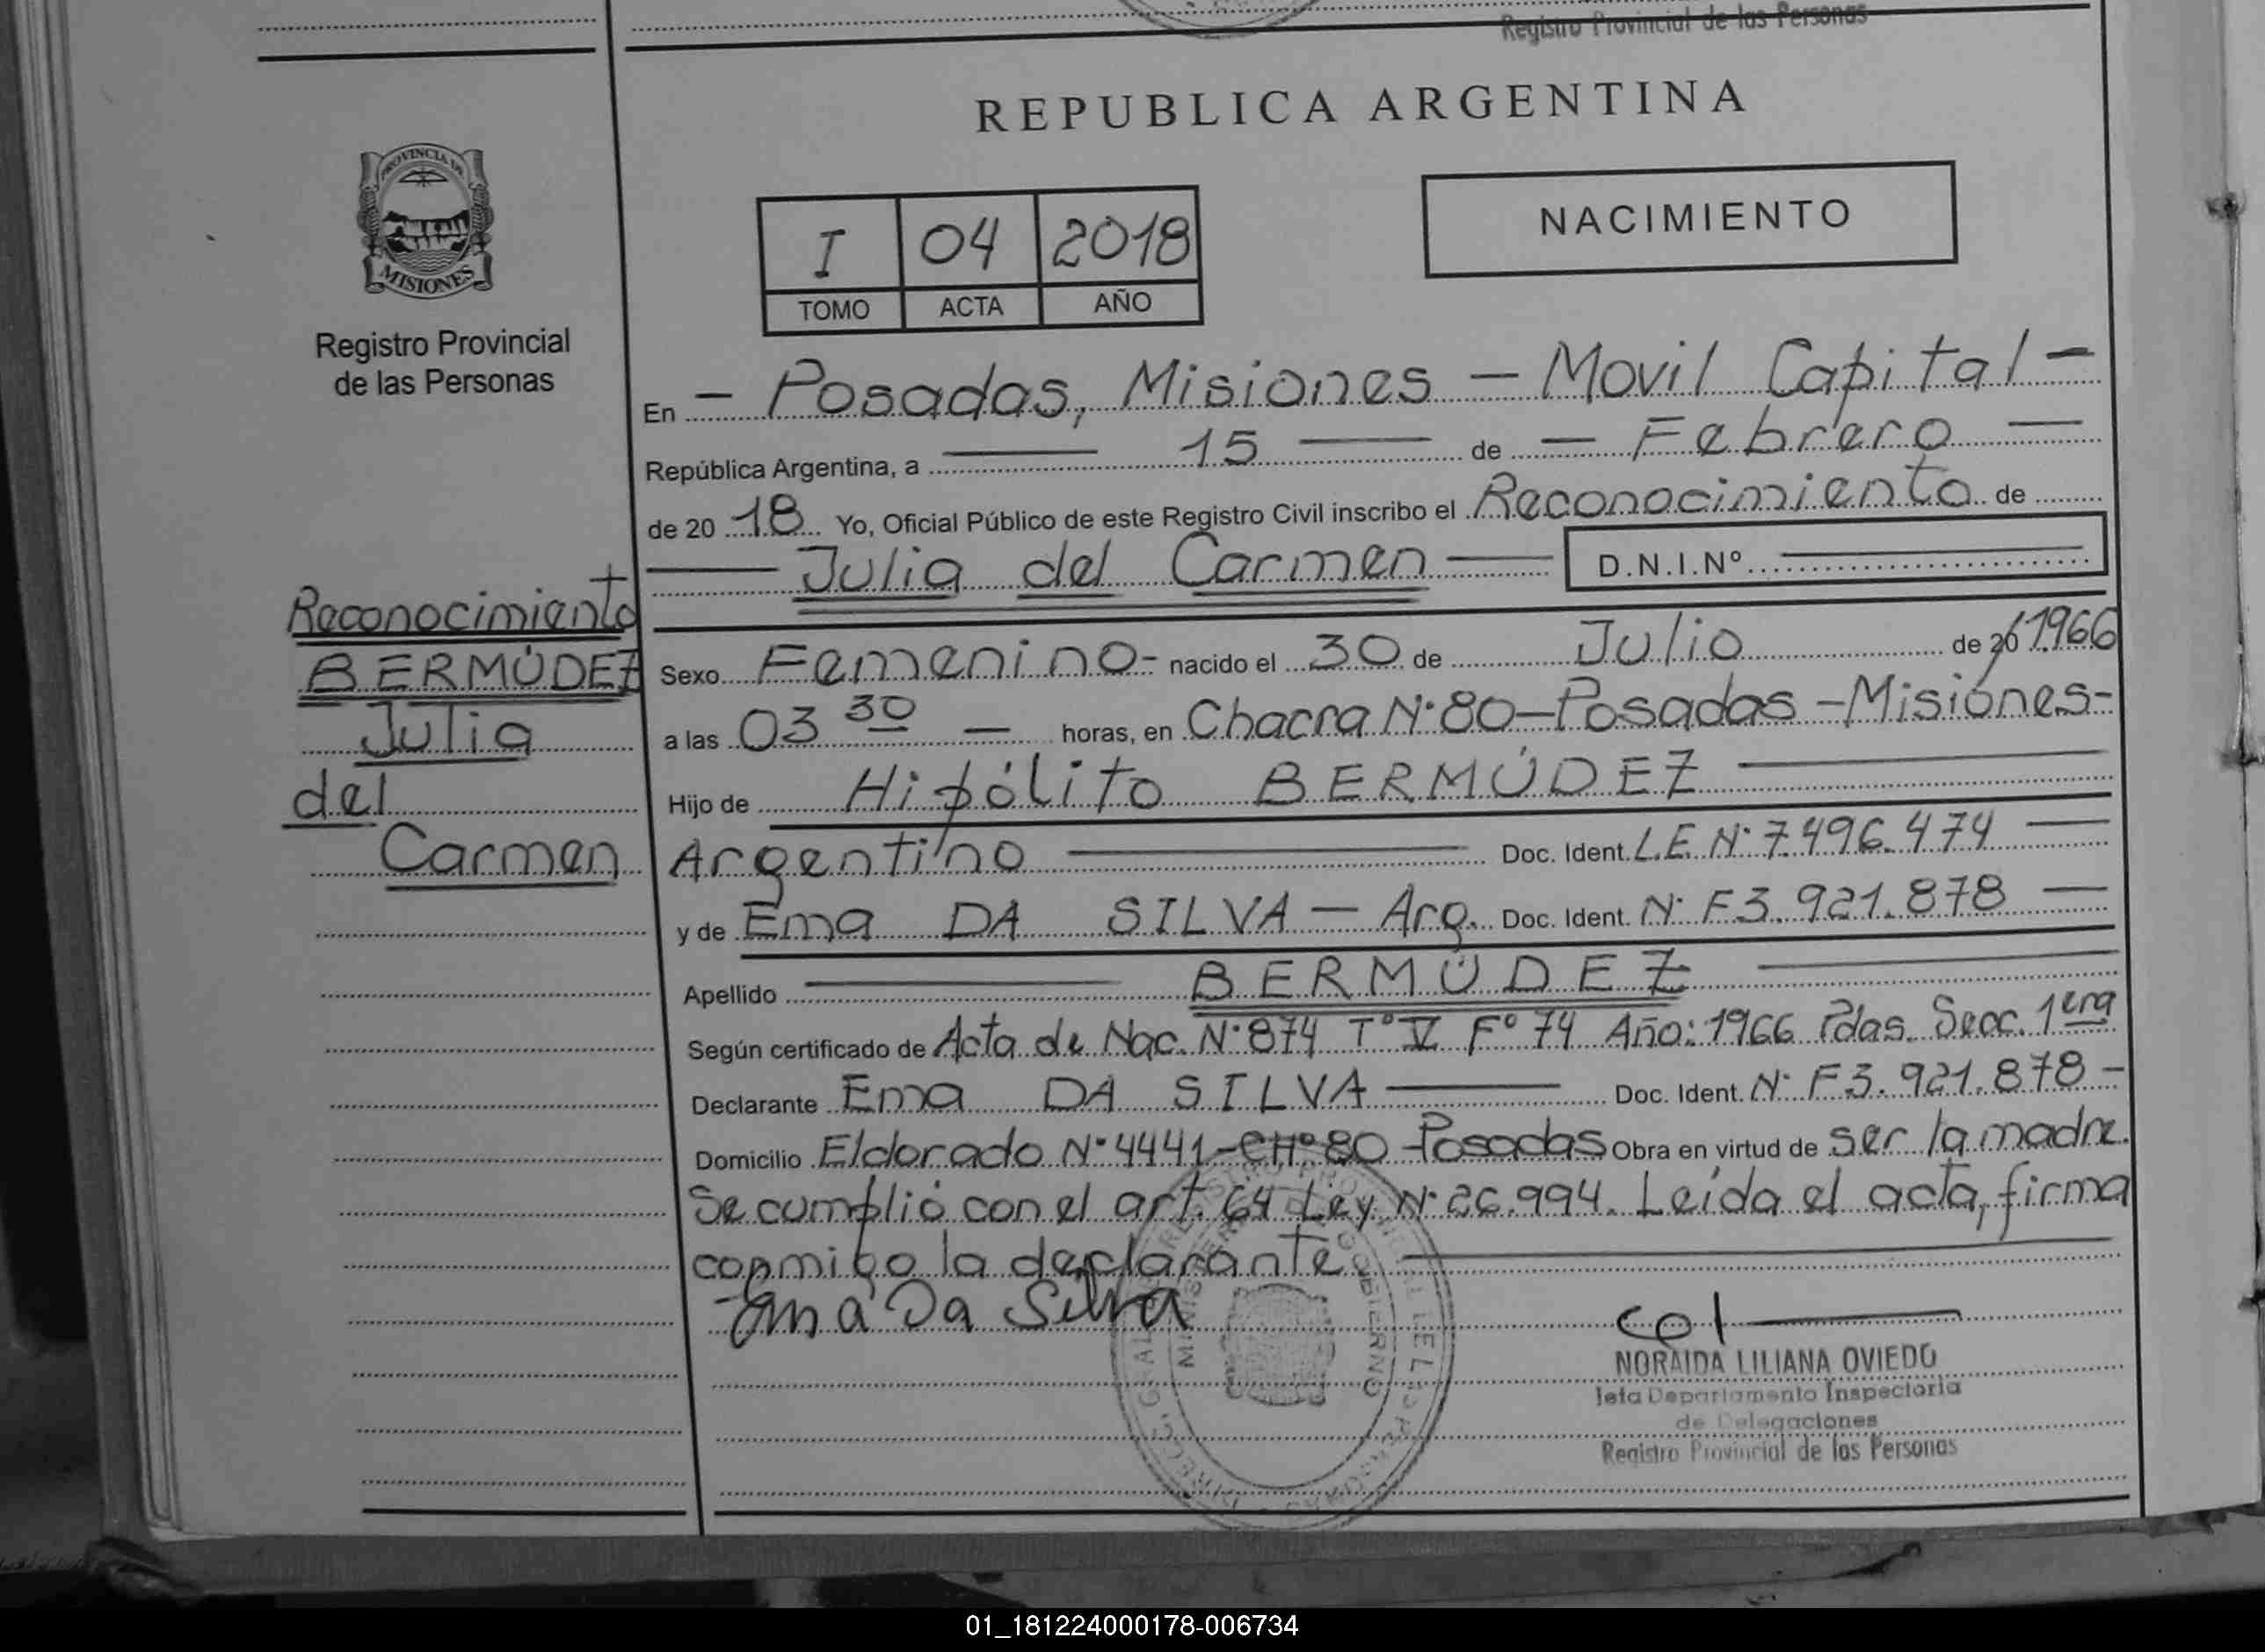 Registro Provincial de las Personas
REPUBLICA ARGENTINA
PROVINCIA DE
MISIONES
Registro Provincial
de las Personas
I 04 2018
TOMO ACTA AÑO
NACIMIENTO
En - Posadas, Misiones - Movil Capital -
República Argentina, a 15 de - Febrero
de 2018 Yo, Oficial Público de este Registro Civil inscribo el Reconocimiento de
Julia del Carmen D.N.I.Nº
Reconocimiento
BERMÚDEZ
Julia
del
Carmen
Sexo Femenino- nacido el 30 de Julio de 20/1966
a las 03 30 - horas, en Chacra N° 80-Posadas-Misiones-
Hijo de Hipólito BERMÚDEZ
Argentino Doc. Ident. L.E. N° 7.496.474
y de Ema DA SILVA - Arg. Doc. Ident. N° F3.921.878
Apellido BERMÚDEZ
Según certificado de Acta de Nac. N° 874 T° V F° 74 Año: 1966 Pdas. Secc. 1era
Declarante Ema DA SILVA Doc. Ident. N° F3.921.878-
Domicilio Eldorado N° 4441-CHº 80-Posadas Obra en virtud de ser la madre.
Se cumplió con el art. 64 Ley N° 26.994. Leída el acta, firma
conmigo la declarante.
Ema Da Silva
NORAIDA LILIANA OVIEDO
Jefa Departamento Inspectoria
de Delegaciones
Registro Provincial de las Personas
01_181224000178-006734